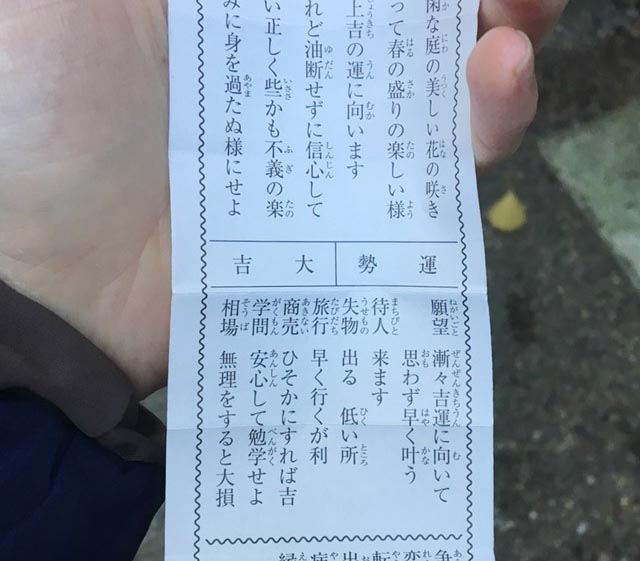 閑な庭の美しい花の咲き
って春の盛りの楽しい様
上吉の運に向います
れど油断せずに信心して
い正しく些かも不義の楽
みに身を過たぬ様にせよ
運勢 大吉
願望 漸々吉運に向いて
思わず早く叶う
待人 来ます
失物 出る 低い所
旅行 早く行くが利
商売 ひそかにすれば吉
学問 安心して勉学せよ
相場 無理をすると大損